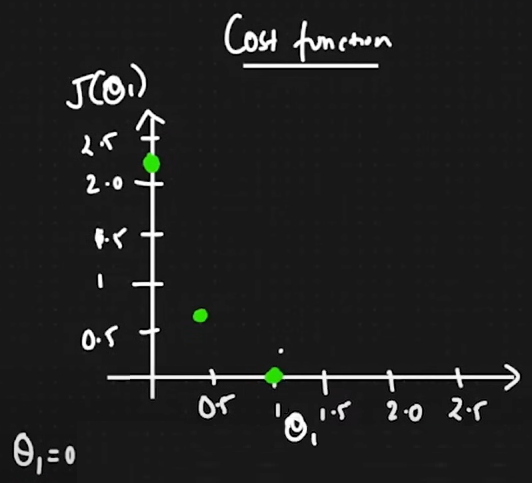 Cost function
J(θ₁)
2.5
2.0
1.5
1
0.5
0.5 1 1.5 2.0 2.5
θ₁
θ₁=0